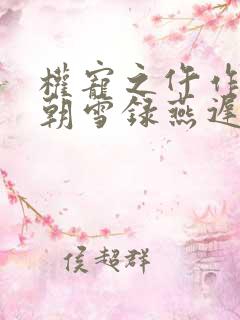 權寵之仵作
朝雪録燕遲
侯超群